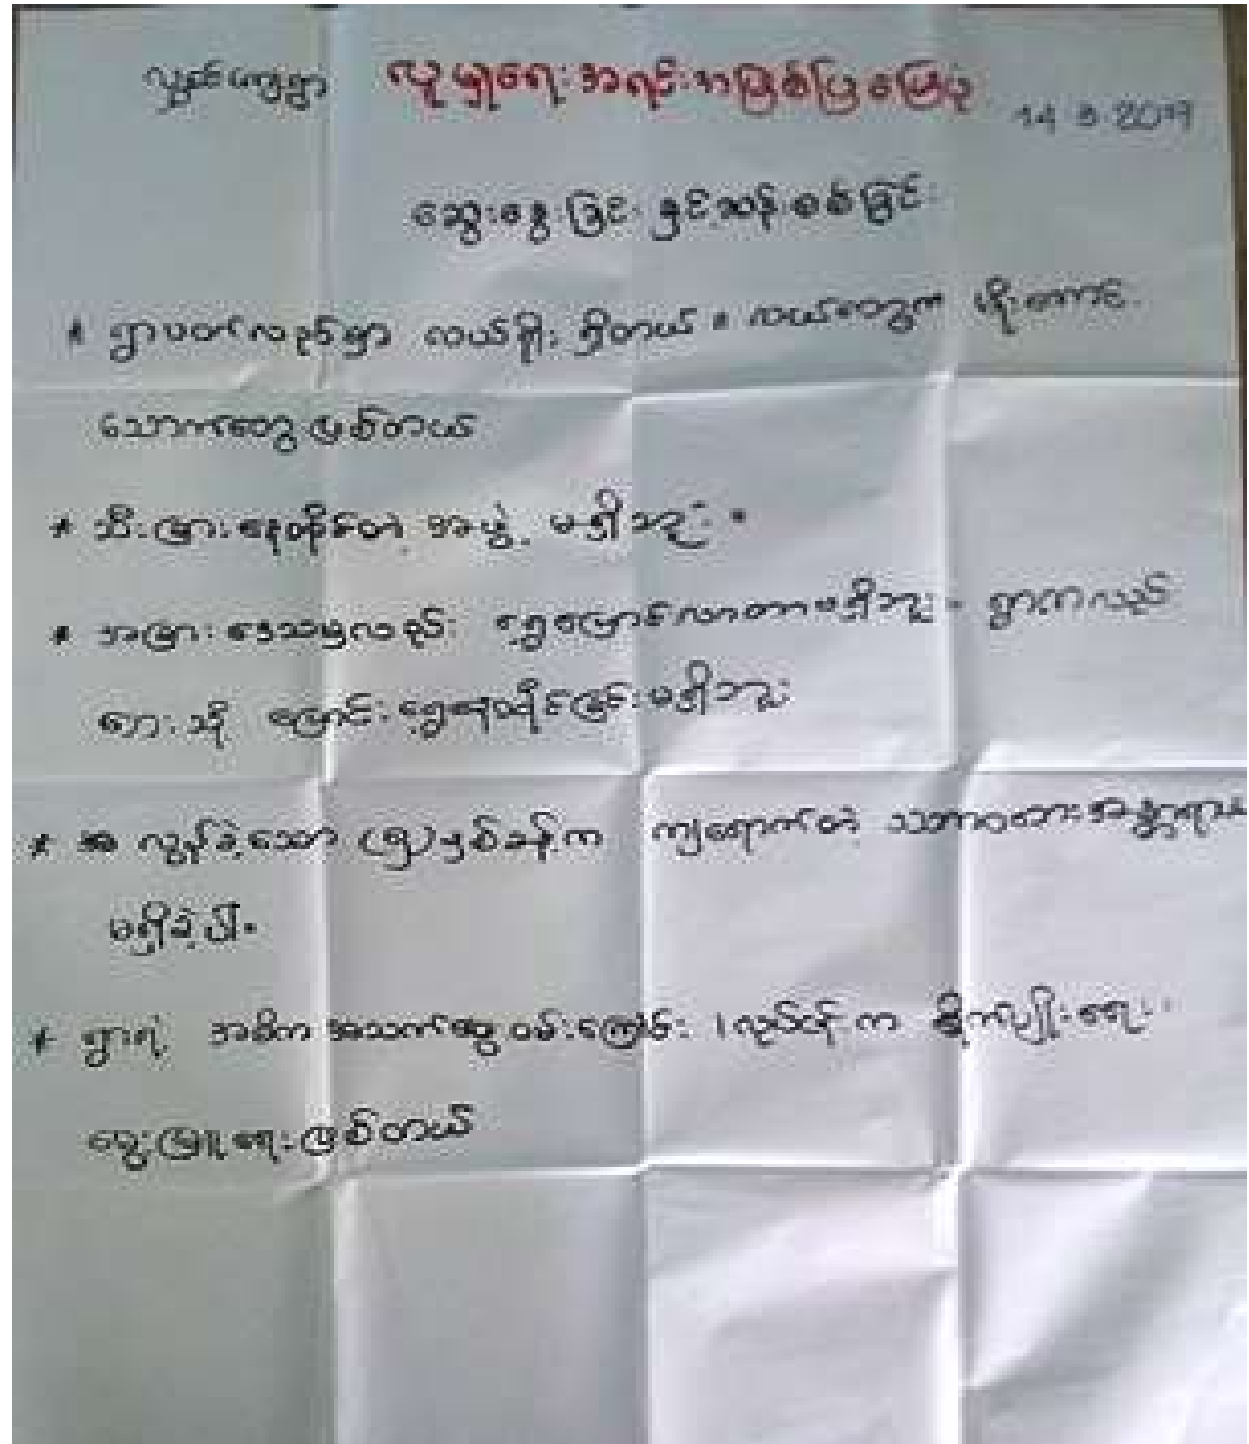 လူမှုရေးအရင်းအမြစ်ပြမြေပုံ
ဆွေးနွေးခြင်း နှင့်သန်းစစ်ခြင်း
* ရွာပတ်လည်မှာ လယ်ရှိုး ရှိတယ်။ လယ်တွေက မိုးကောင်း
သောက်တွေ ဖြစ်တယ်
* သီးခြားနေထိုင်တဲ့ အဖွဲ့ မရှိဘူး။
* အခြားဒေသမှလည်း ရွှေ့ပြောင်လာတာမရှိဘူး - ရွာကလည်
တေးသို့ ပြောင်းရွှေ့နေထိုင်ခြင်းမရှိဘူး
* လွန်ခဲ့သော (၅)နှစ်ခန့်က ကျရောက်တဲ့ သဘာဝဘေးအန္တရာယ်
မရှိခဲ့ပါ။
* ရွာရဲ့ အဓိကအသက်မွေးဝမ်းကြောင်း လုပ်ငန်းက စိုက်ပျိုးရေး
မွေးမြူရေးဖြစ်တယ်